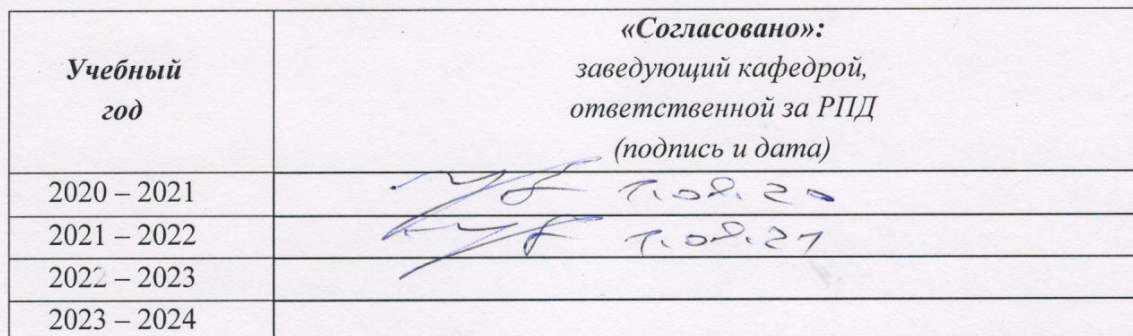 «Согласовано»:
Учебный
год
заведующий кафедрой,
ответственной за РПД
(подпись и дата)
2020 – 2021 1.09.20
2021 – 2022 1.09.21
2022 – 2023
2023 – 2024